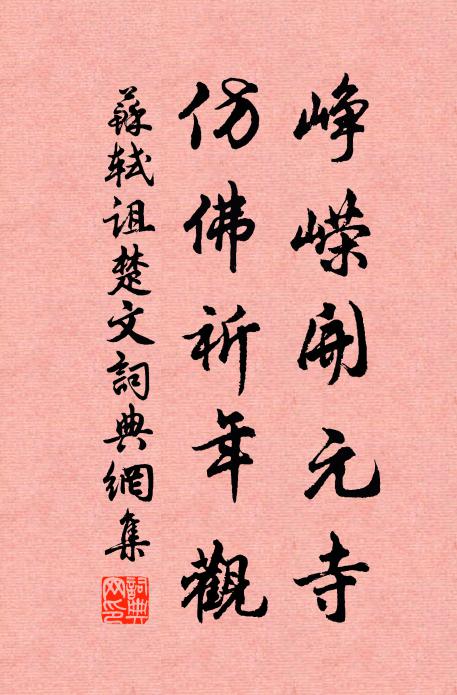 崢嶸開元寺
仿佛祈年觀
蘇軾詛楚文詞典網集
詞典網印